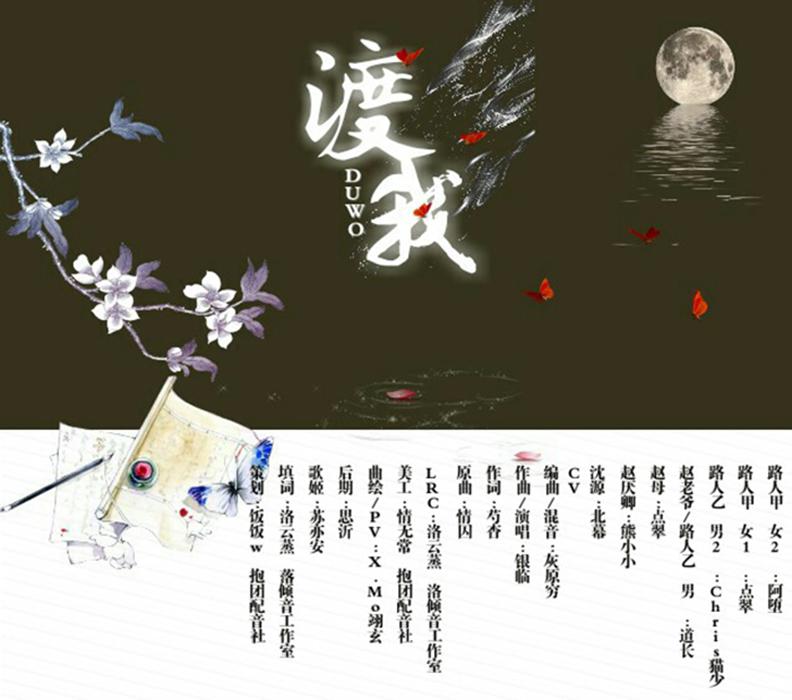 渡我
DUWO
策划:饭饭w 抱团配音社
填词:洛云蒸 落倾音工作室
歌姬:苏苏安
后期:思沂
曲绘/PV:X.Mo翊玄
美工:情无常 抱团配音社
LRC:洛云蒸 洛倾音工作室
原曲:情囚
作词:芍香
作曲/演唱:银临
编曲/混音:灰原穷
CV
沈源:北幕
赵厌卿:熊小小
赵母:点翠
赵老爷/路人乙 男:道长
路人乙 男2:Chris猫少
路人甲 女1:点翠
路人甲 女2:阿堕